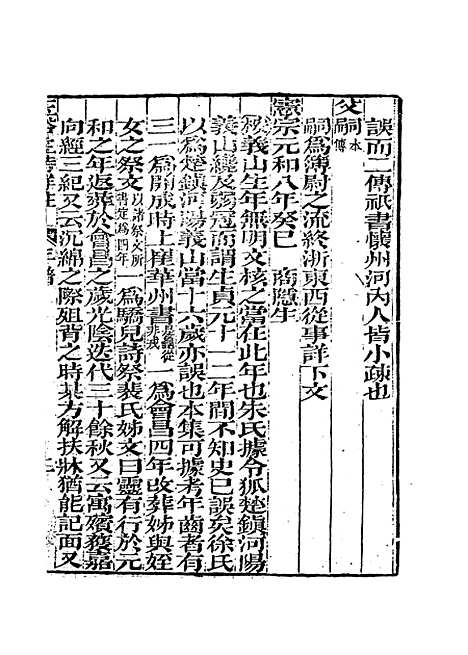 誤而二傳祇書懷州河內人皆小疎也
父嗣本傳
嗣為簿尉之流終浙東西從事詳下文
憲宗元和八年癸巳 商隱生
按義山生年無明文核之當在此年也朱氏據令狐楚鎮河陽
義山纔及弱冠而謂生貞元十一二年間不知史已誤矣徐氏
以為楚鎮河陽義山當十六歲亦誤也本集可據考年齒者有
三一為開成時上崔華州書是龜從非戎一為會昌四年改葬姊與姪
女之祭文以諸祭文所書定為四年一為驕兒詩祭裴氏姊文曰靈有行於元
和之年返葬於會昌之歲光陰迭代三十餘秋又云寓殯獲嘉
向經三紀又云沉綿之際殂背之時某方解扶牀猶能記面又